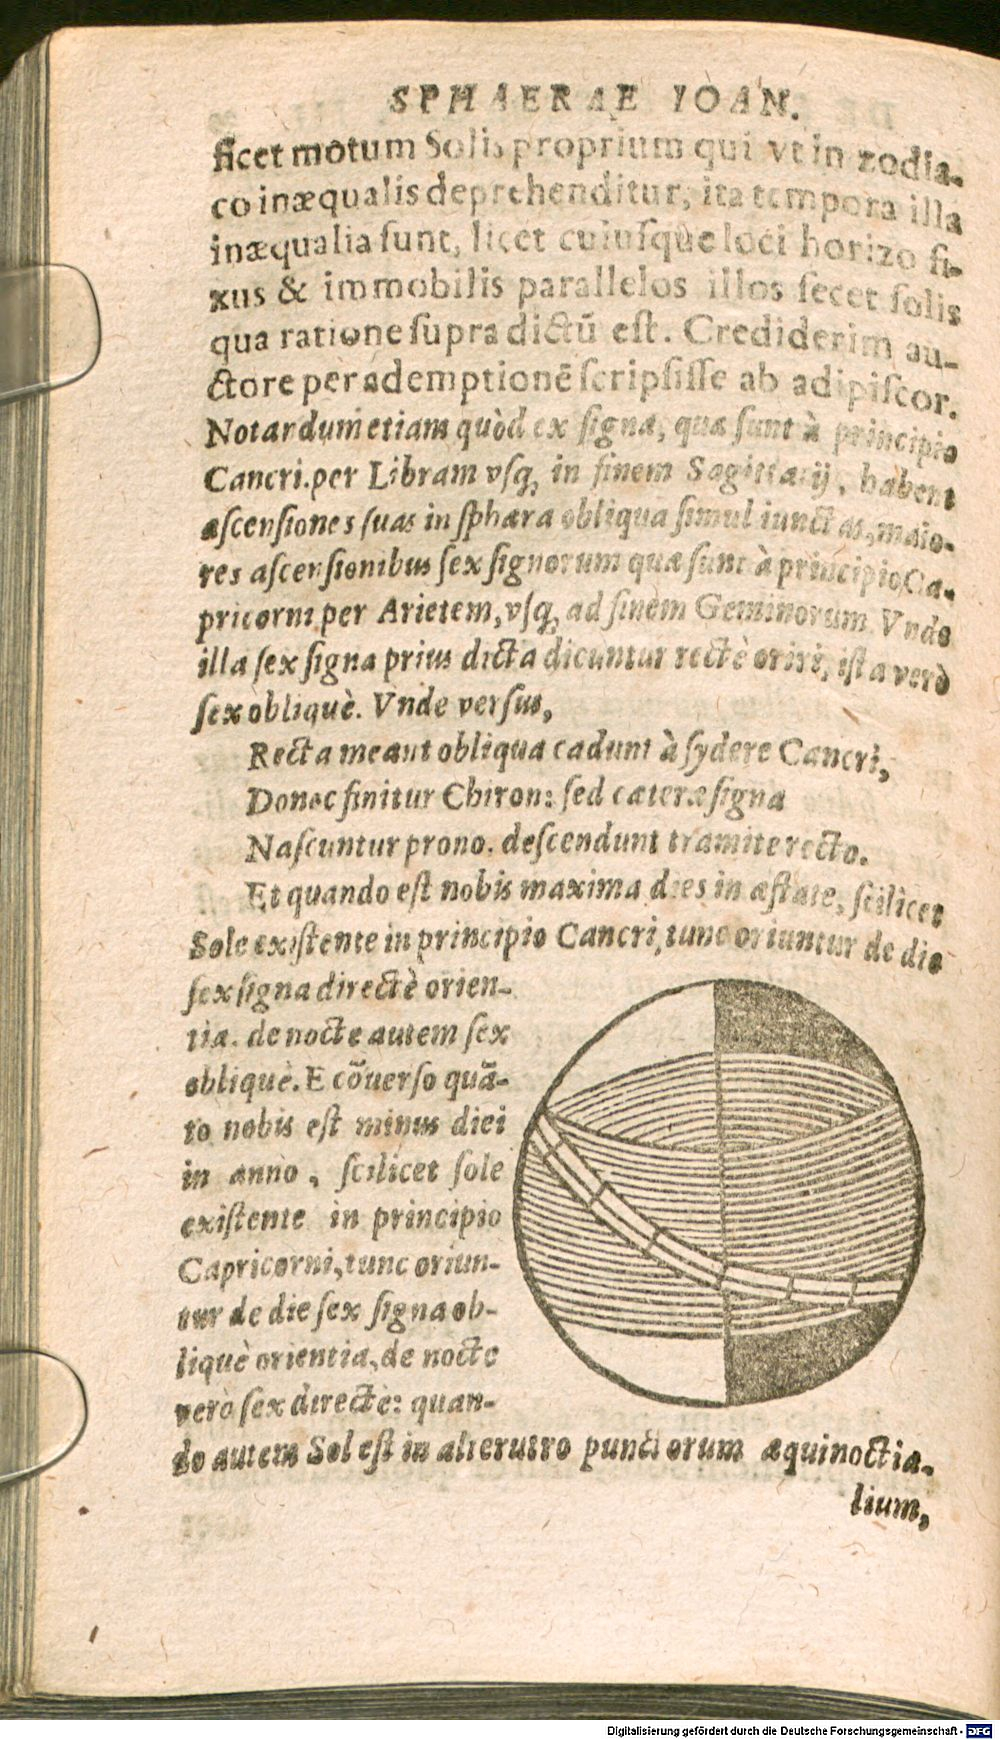 SPHAERAE IOAN.
ficet motum Solis proprium qui vt in zodia-
co inæqualis deprehenditur, ita tempora illa
inæqualia sunt, licet cuiusque loci horizo fi-
xus & immobilis parallelos illos secet solis
qua ratione supra dictū est. Crediderim au-
ctore per ademptionē scripsisse ab adipiscor.
Notandum etiam quòd ex signa, quæ sunt à principio
Cancri.per Libram vsq, in finem Sagittarij, habent
ascensiones suas in sphæra obliqua simul iunctas, maio-
res ascensionibus sex signorum quæ sunt à principio Ca-
pricorni per Arietem, vsq, ad finem Geminorum. Vnde
illa sex signa prius dicta dicuntur rectè oriri, ista verò
sex obliquè. Vnde versus,
Recta meant obliqua cadunt à sydere Cancri,
Donec finitur Chiron: sed cæteræ signa
Nascuntur prono. descendunt tramite recto.
Et quando est nobis maxima dies in æstate, scilicet
Sole existente in principio Cancri, tunc oriuntur de die
sex signa directè orien-
tia. de nocte autem sex
obliquè. E cōuerso quā-
to nobis est minus diei
in anno, scilicet sole
existente in principio
Capricorni, tunc oriun-
tur de die sex signa ob-
liquè orientia, de nocte
verò sex directè: quan-
do autem Sol est in alterutro punctorum æquinoctia-
lium,
Digitalisierung gefördert durch die Deutsche Forschungsgemeinschaft - DFG